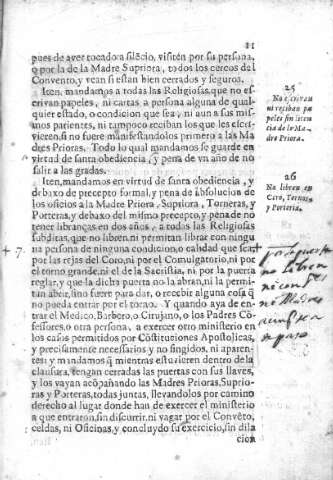 11
pues de aver tocado a silēcio, visitēn por su persona,
o por la de la Madre Supriora, todos los cercos del
Convento, y vean si estan bien cerrados y seguros.
Iten, mandamos a todas las Religiosas, que no es-
crivan papeles, ni cartas a persona alguna de qual-
quier estado, o condicion que sea, ni aun a sus mis-
mos parientes, ni tampoco reciban los que les escri-
vieren, si no fuere manifestandolos primero a las Ma
dres Prioras. Todo lo qual mandamos se guarde en
virtud de santa obediencia, y pena de vn año de no
salir a las gradas.
Iten, mandamos en virtud de santa obediencia, y
debaxo de precepto formal, y pena de absolucion de
los oficios a la Madre Priora, Supriora, Torneras, y
Porteras, y debaxo del mismo precepto, y pena de no
tener libranças en dos años, a todas las Religiosas
subditas, que no libren, ni permitan librar con ningu
na persona de ninguna condicion, o calidad que sea,
por las rejas del Coro, ni por el Comulgatorio, ni por
el torno grande, ni el de la Sacristia, ni por la puerta
reglar, y que la dicha puerta no la abran, ni la permi-
tan abrir, sino fuere para dar, o recebir alguna cosa q̃
no pueda entrar por el torno. Y quando aya de en-
trar el Medico, Barbero, o Cirujano, o los Padres Cō-
fessores, o otra persona, a exercer otro ministerio en
los casos permitidos por Cōstituciones Apostolicas,
y precisamente necesarios y no fingidos, ni aparen-
tes: y mandamos q̃ mientras estuvieren dentro de la
clausura, tengan cerradas las puertas con sus llaves,
y los vayan acōpañando las Madres Prioras, Suprio-
ras y Porteras, todas juntas, llevandolos por camino
derecho al lugar donde han de exercer el ministerio
a que entraron, sin discurrir, ni vagar por el Convēto,
celdas, ni Oficinas, y concluydo su exercicio, sin dila
cion
25
No escrivan
ni reciban pa
peles sin licen
cia de la Ma-
dre Priora.
26
No libren en
Coro, Tornos,
y Porteria.
+ 7.
no libren
ni con
ni Madres